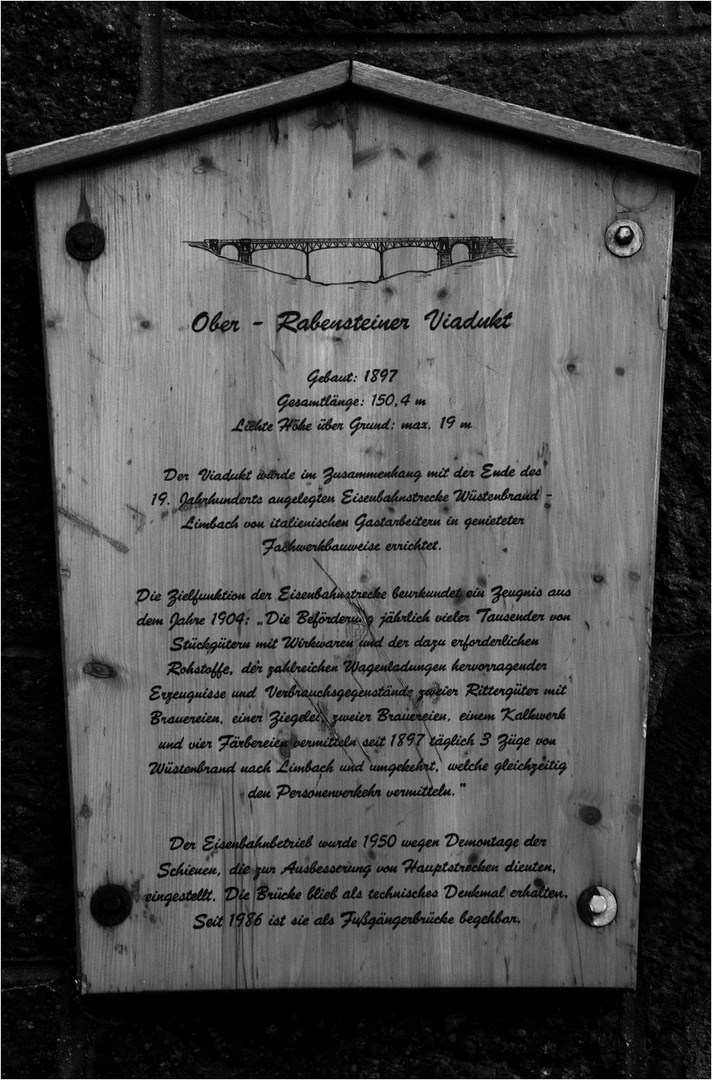 Ober - Rabensteiner Viadukt
Gebaut: 1897
Gesamtlänge: 150,4 m
Lichte Höhe über Grund: max. 19 m
Der Viadukt wurde im Zusammenhang mit der Ende des
19. Jahrhunderts angelegten Eisenbahnstrecke Wüstenbrand -
Limbach von italienischen Gastarbeitern in genieteter
Fachwerkbauweise errichtet.
Die Zielfunktion der Eisenbahnstrecke beurkundet ein Zeugnis aus
dem Jahre 1904: „Die Beförderung jährlich vieler Tausender von
Stückgütern mit Wirkwaren und der dazu erforderlichen
Rohstoffe, der zahlreichen Wagenladungen hervorragender
Erzeugnisse und Verbrauchsgegenstände zweier Rittergüter mit
Brauereien, einer Ziegelei, zweier Brauereien, einem Kalkwerk
und vier Färbereien vermitteln seit 1897 täglich 3 Züge von
Wüstenbrand nach Limbach und umgekehrt, welche gleichzeitig
den Personenverkehr vermitteln."
Der Eisenbahnbetrieb wurde 1950 wegen Demontage der
Schienen, die zur Ausbesserung von Hauptstrecken dienten,
eingestellt. Die Brücke blieb als technisches Denkmal erhalten.
Seit 1986 ist sie als Fußgängerbrücke begehbar.